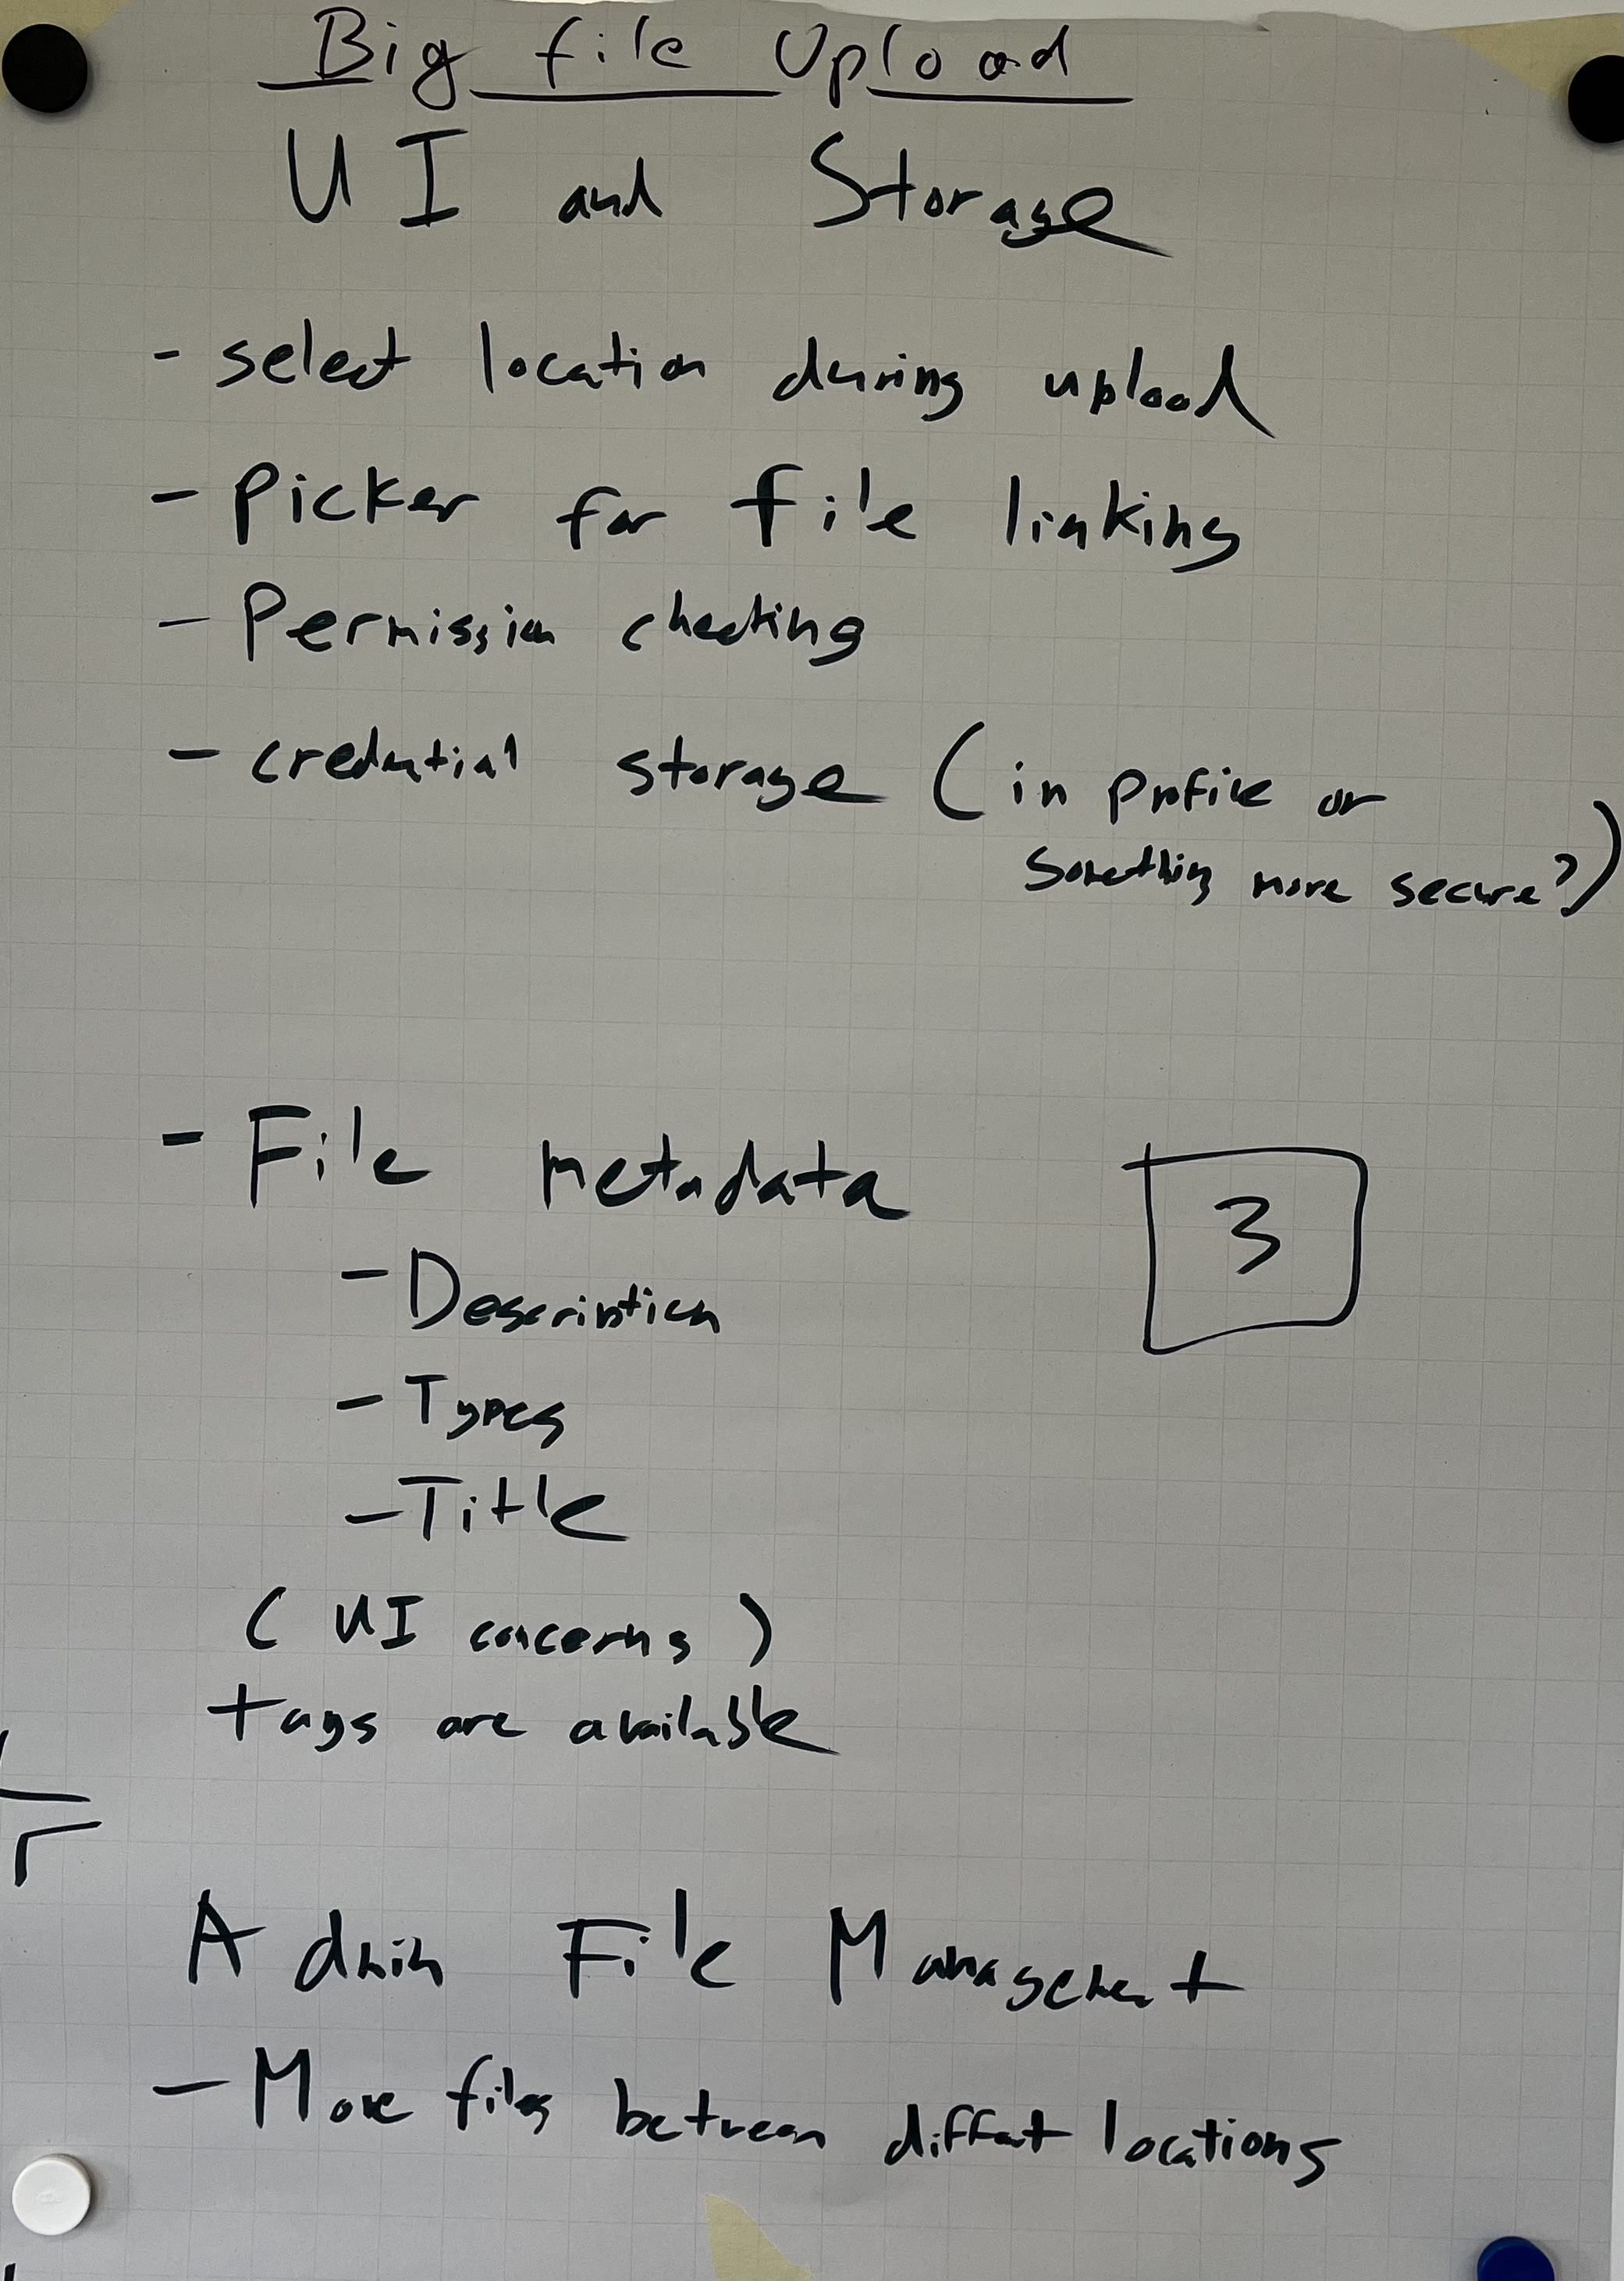 Big file Upload
UI and Storage
- select location during upload
- Picker for file linking
- Permission checking
- credential storage (in profile or
something more secure?)
- File metadata
3
- Description
- Types
- Title
(UI concerns)
tags are available
Admin File Management
- Move files between different locations